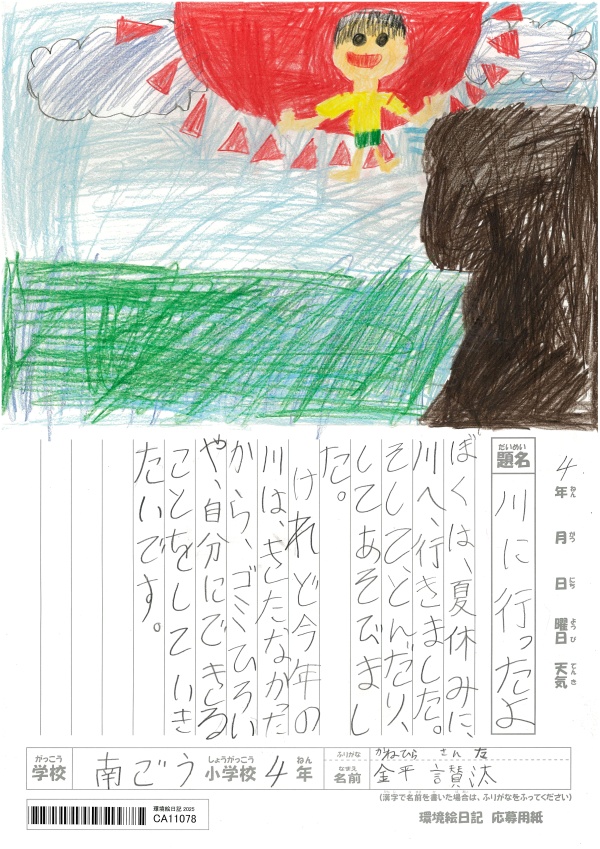 4年 月 日 曜日 天気
ねん がつ にち ようび てんき
だいめい
題名
川に行ったよ
ぼくは、夏休みに、
川へ、行きました。
そして、とんだり、
してあそびまし
た。
けれど今年の
川は、きたなかった
から、ゴミひろい
や、自分にできる
ことをしていき
たいです。
がっこう しょうがっこう ねん
学校 南ごう小学校 4年
ふりがな かねひら さん た
なまえ
名前 金平 讃汰
(漢字で名前を書いた場合は、ふりがなをふってください)
環境絵日記 2025
CA11078
環境絵日記 応募用紙